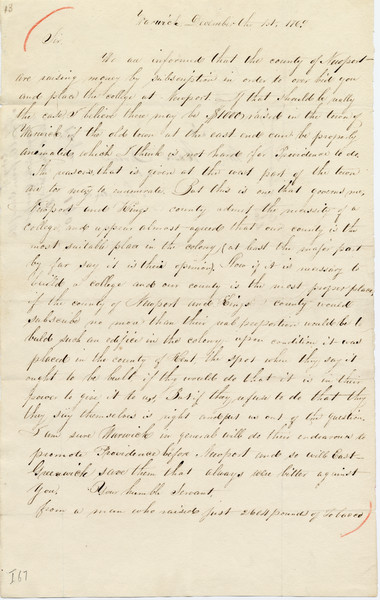 13
Warwick December the 1st, 1769
Sir
We are informed that the county of Newport
are raising money by subscription in order to over bid you
and place the college at Newport If that should be really
the case I believe there may be $1000 raised in the town of
Warwick if the old town at the east end can be properly
animated which I think is not hard for Providence to do.
The reasons that is given at the west part of the town
are too many to enumerate. But this is one that governs me,
Newport and Kings county admit the necessity of a
college and appear almost agreed that our county is the
most suitable place in the colony (at least the major part
by far say it is their opinion) Now if it is necessary to
build a college and our county is the most proper place,
if the county of Newport and Kings county would
subscribe no more than their proportion would be to
build such an edifice in the colony upon condition it was
placed in the county of Kent the spot where they say it
ought to be built if they would do that it is in their
power to give it to us, But if they refuse to do that they
they say themselves is right and put us out of the question,
I am sure Warwick in general will do their endeavours to
promote Providence before Newport and so will East-
Greenwich save them that always were bitter against
you. Your humble Servant,
from a man who raised just 2604 pounds of tobacco
I67